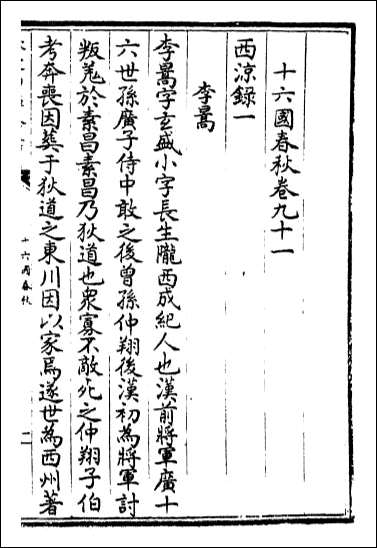 十六國春秋卷九十一
西涼錄一
李暠
李暠字玄盛小字長生隴西成紀人也漢前將軍廣十
六世孫廣子侍中敢之後曾孫仲翔後漢初為將軍討
叛羌於素昌素昌乃狄道也衆寡不敵死之仲翔子伯
考奔喪因葬于狄道之東川因以家焉遂世為西州著
十六國春秋